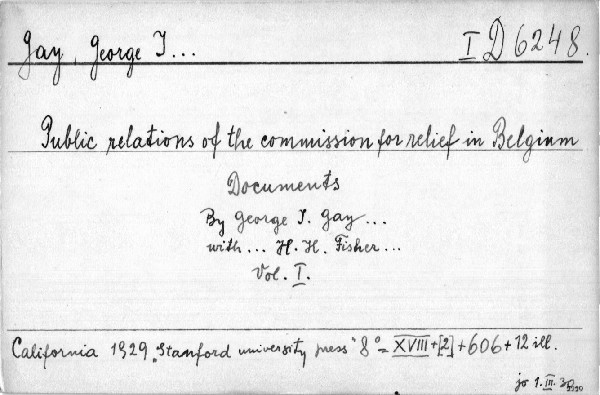 Gay, George I... I D 6248.
Public relations of the commission for relief in Belgium
Documents
By George I. Gay...
with... H. H. Fisher...
Vol. I.
California 1929 "Stanford university press" 8° = XVIII+[2]+606+12 ill.
jo 1. III. 30